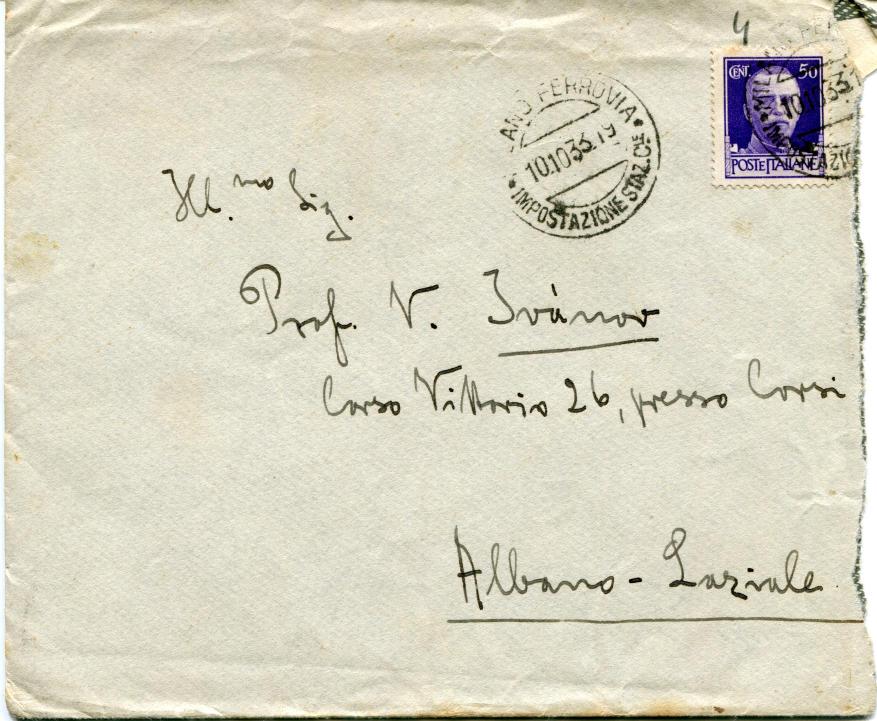 4
CENT. 50
POSTE ITALIANE
ANO FERROVIA
10.10 33.19
IMPOSTAZIONE STAZ. CLE
Ill.mo Sig.
Prof. V. Ivànov
Corso Vittorio 26, presso Corsi
Albano - Laziale